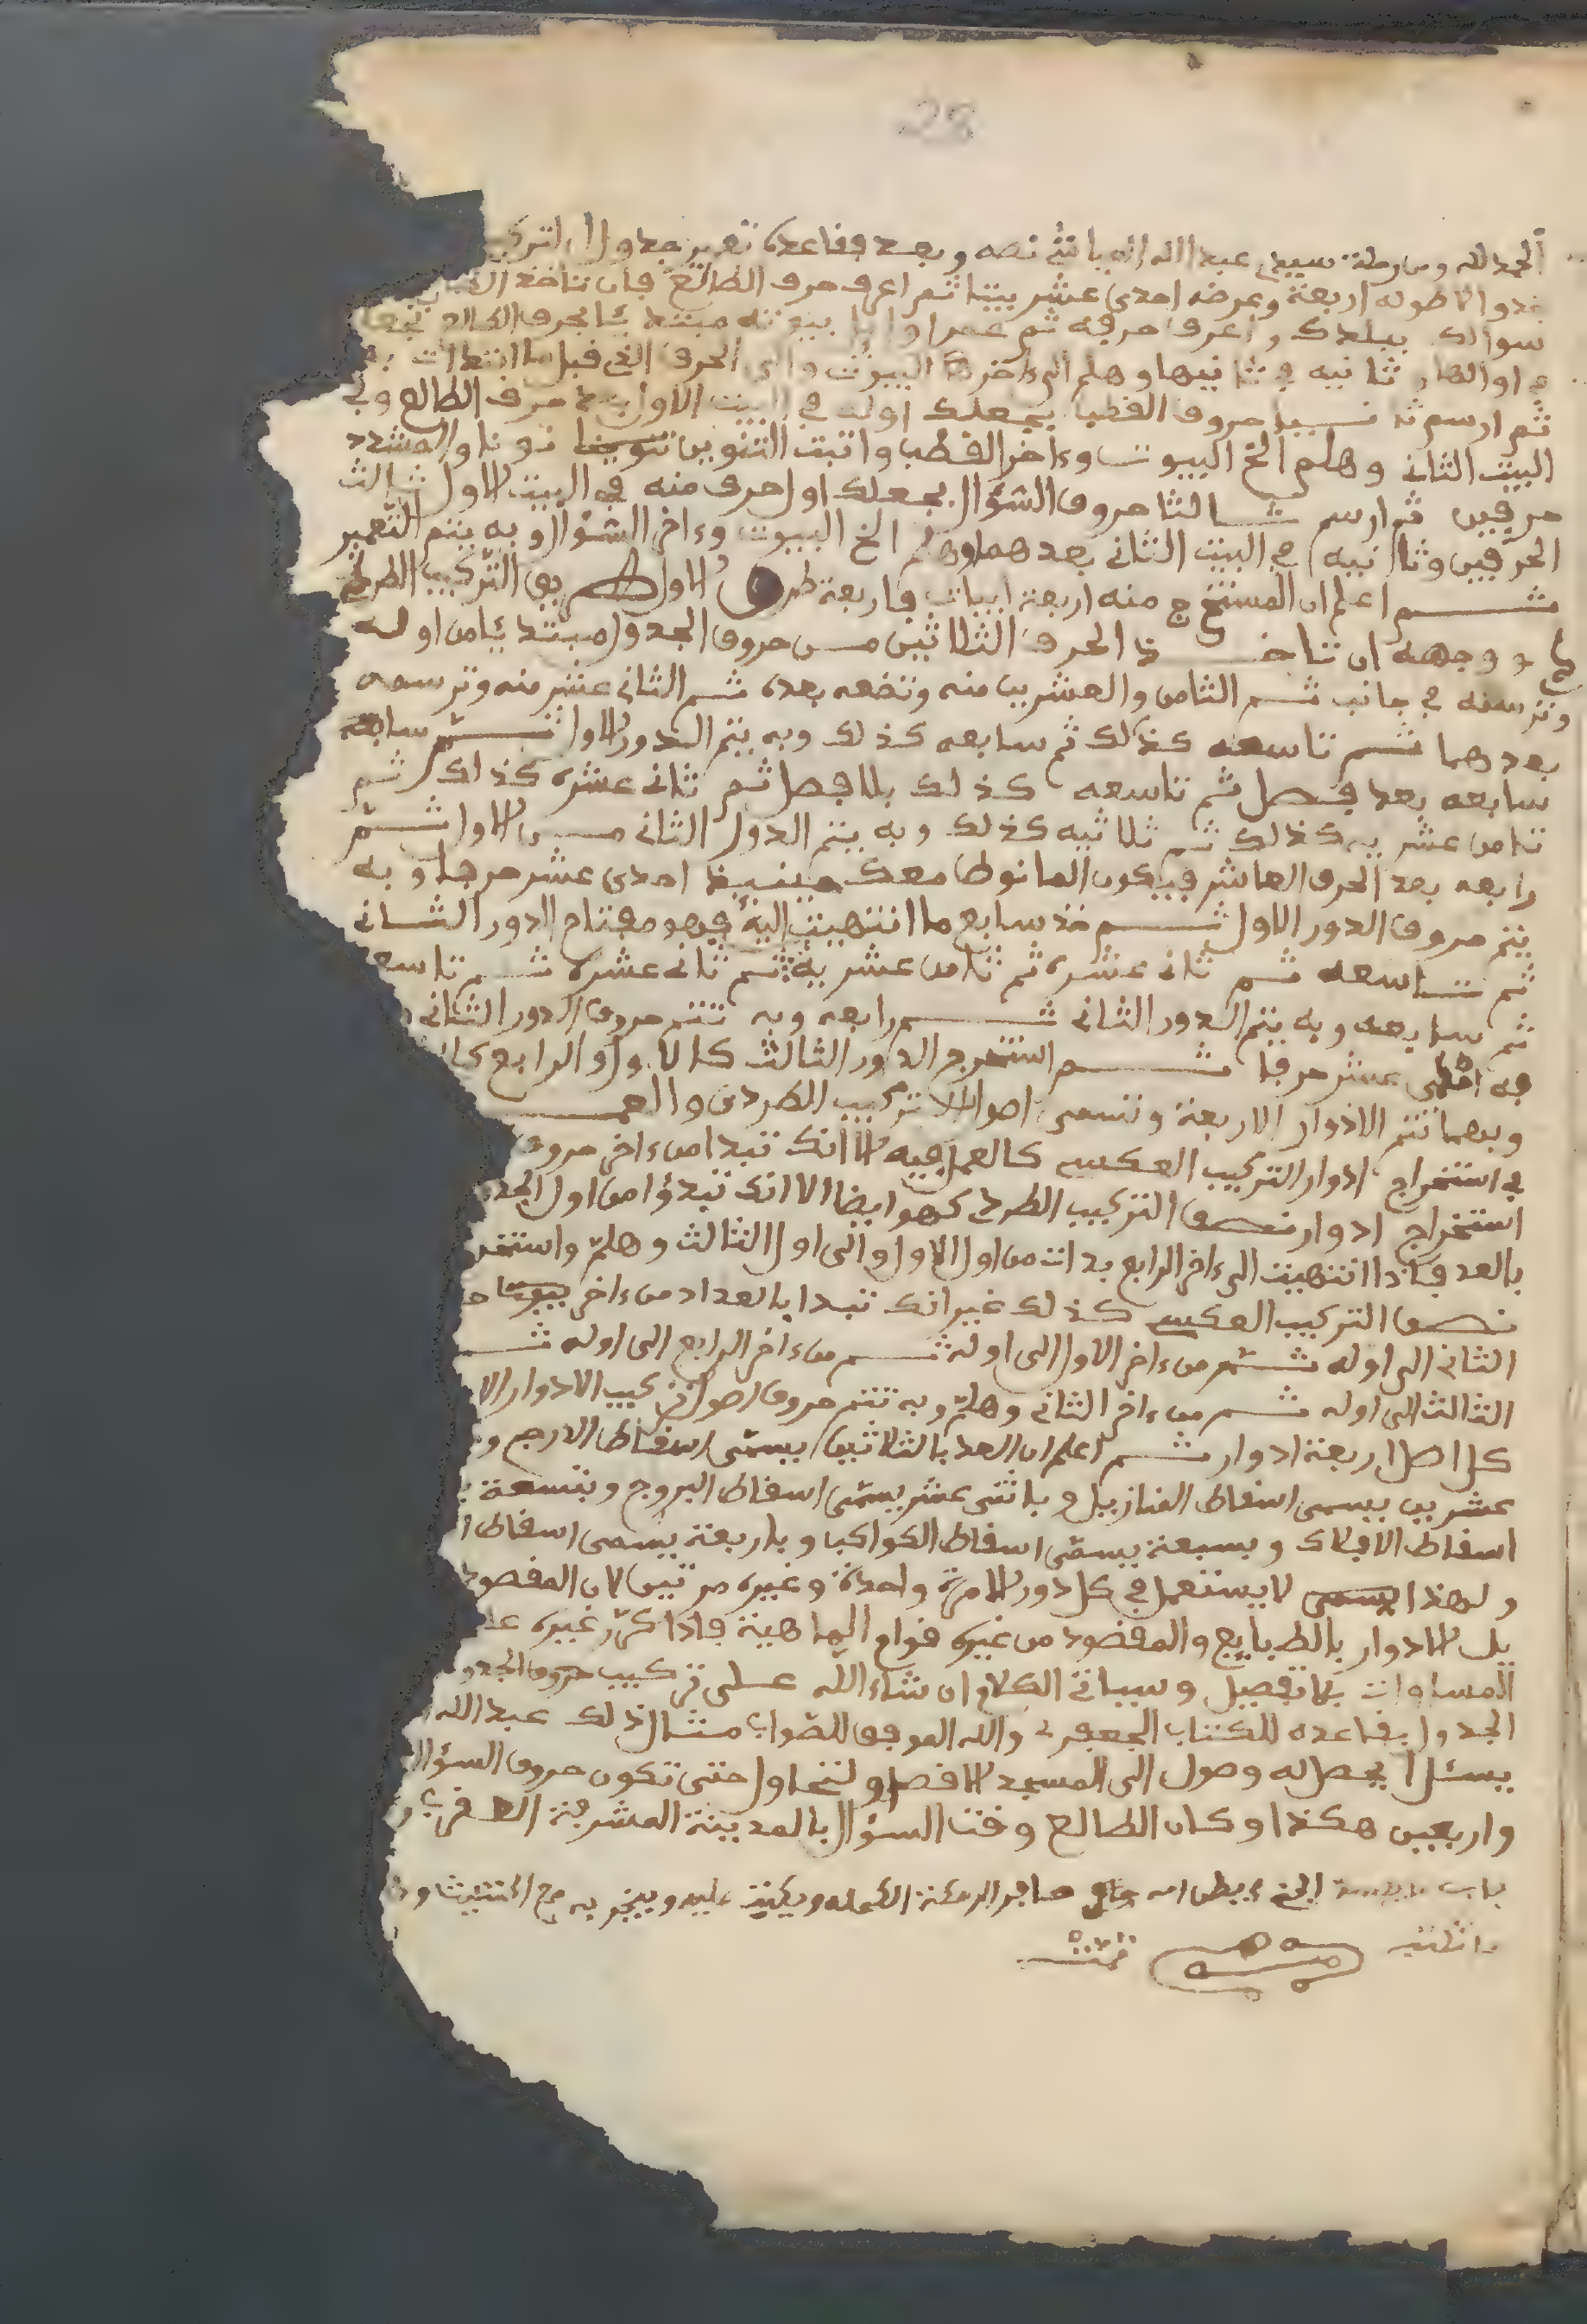 28
الحمد لله ومن رحلة سيدي عبد الله انه يا نصه وبعد فقاعدة تعمير جدول التركيب
جدولا طوله اربعة وعرضه احدى عشر بيتا ثم اعرف حرف الطالع فان تاخذ
سوالك ببلدك واعرف حرفه ثم عمر اوايل بيوته مبتدئا بحرف الطالع
في اولها وثانيه في ثانيها وهلم الى ءاخر البيوت والى الحرف الذي قبل ما ابتدات به
ثم ارسم ثانيا حروف القطب بجعلك اوله في البيت الاول بعد حرف الطالع وفي
البيت الثاني وهلم الخ البيوت وءاخر القطب واثبت التنوين نونا والمشدد
حرفين ثم ارسم ثالثا حروف السؤال بجعلك اول حرف منه في البيت الاول ثالث
الحرفين وثانيه في البيت الثاني بعدهما وهلم الخ البيوت وءاخر السؤال وبه يتم التعمير
ثم اعلم ان المستخرج منه اربعة ابيات فاربعة طرق الاول طريق التركيب الطردي
ووجهه ان تاخذ الحرف الثلاثين من حروف الجدول مبتدئا من اوله
وترسمه في جانب ثم الثامن والعشرين منه وتضعه بعده ثم الثاني عشر منه وترسمه
بعدهما ثم تاسعه كذلك ثم سابعه كذلك وبه يتم الدور الاول ثم سابعه
سابعه بعد فصل ثم تاسعه كذلك بلا فصل ثم ثاني عشره كذلك ثم
ثامن عشريه كذلك ثم ثلاثيه كذلك وبه يتم الدور الثاني من الاول ثم
رابعه بعد الحرف العاشر فيكون الماخوذ معك حينيذ احدى عشر حرفا وبه
يتم حروف الدور الاول ثم خذ سابع ما انتهيت اليه فهو مفتاح الدور الثاني
ثم تاسعه ثم ثاني عشره ثم ثامن عشريه ثم ثاني عشره ثم تاسعه
ثم سابعه وبه يتم الدور الثاني ثم رابعه وبه تتم حروف الدور الثاني
فيه احدى عشر حرفا ثم استخرج الدور الثالث كالاول والرابع كالثاني
وبهما تتم الادوار الاربعة وتسمى اصول التركيب الطردي والعمل
في استخراج ادوار التركيب العكسي كالعمل فيه الا انك تبدا من ءاخر حروف
استخراج ادوار نصف التركيب الطردي كهو ايضا الا انك تبدؤا من اول الجدول
بالعد فاذا انتهيت الى ءاخر الرابع بدات من اول الاول والى اول الثالث وهلم واستخر
نصف التركيب العكسي كذلك غير انك تبدا بالعداد من ءاخر بيوت
الثاني الى اوله ثم من ءاخر الاول الى اوله ثم من ءاخر الرابع الى اوله ثم
الثالث الى اوله ثم من ءاخر الثاني وهلم وبه تتم حروف اصول تركيب الادوار الا
كل اصل اربعة ادوار ثم اعلم ان العد بالثلاثين يسمى اسقاط الدرج و
عشرين يسمى اسقاط المنازيل وباثنى عشر يسمى اسقاط البروج وبتسعة
اسقاط الافلاك وبسبعة يسمى اسقاط الكواكب وباربعة يسمى اسقاط ا
ولهذا لا يستعمل في كل دور الا مرة واحدة وغيره مرتين لان المقصود
يل الادوار بالطبايع والمقصود من غيره قوام الماهية فاذا كرر غيره
المساوات بلا تفصيل وسياتي الكلام ان شاء الله على تركيب حروف الجدو
الجدول بقاعده للكتاب الجعفري والله الموفق للصواب مثال ذلك عبد الله
يسئل ايحصل له وصول الى المسجد الاقصى ولتحاول حتى تكون حروف السؤال
واربعين هكذا وكان الطالع وقت السؤال بالمدينة المشرفة العقرب و
باب حافر الرمكة ويكتب عليه ويبخر به مع الكبريت
تمت